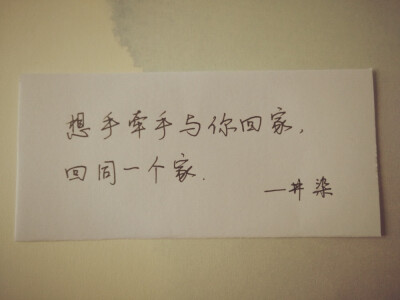 想手牵手与你回家，
回同一个家.
—井染